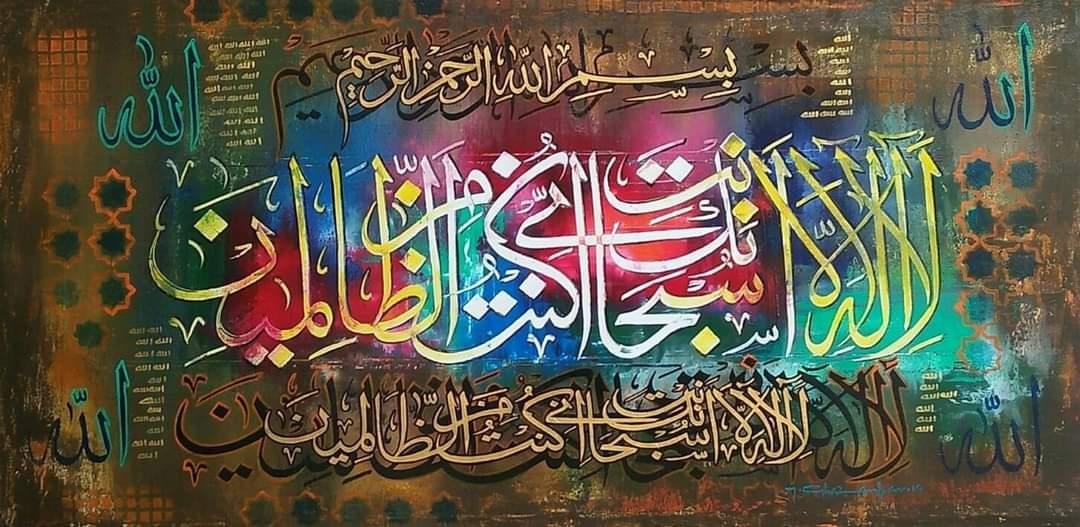 بِسْمِ اللهِ الرَّحْمٰنِ الرَّحِيْمِ
الله
الله
لَا إِلٰهَ إِلَّا أَنْتَ سُبْحَانَكَ إِنِّي كُنْتُ مِنَ الظَّالِمِيْنَ
لَا إِلٰهَ إِلَّا أَنْتَ سُبْحَانَكَ إِنِّي كُنْتُ مِنَ الظَّالِمِيْنَ
الله
الله